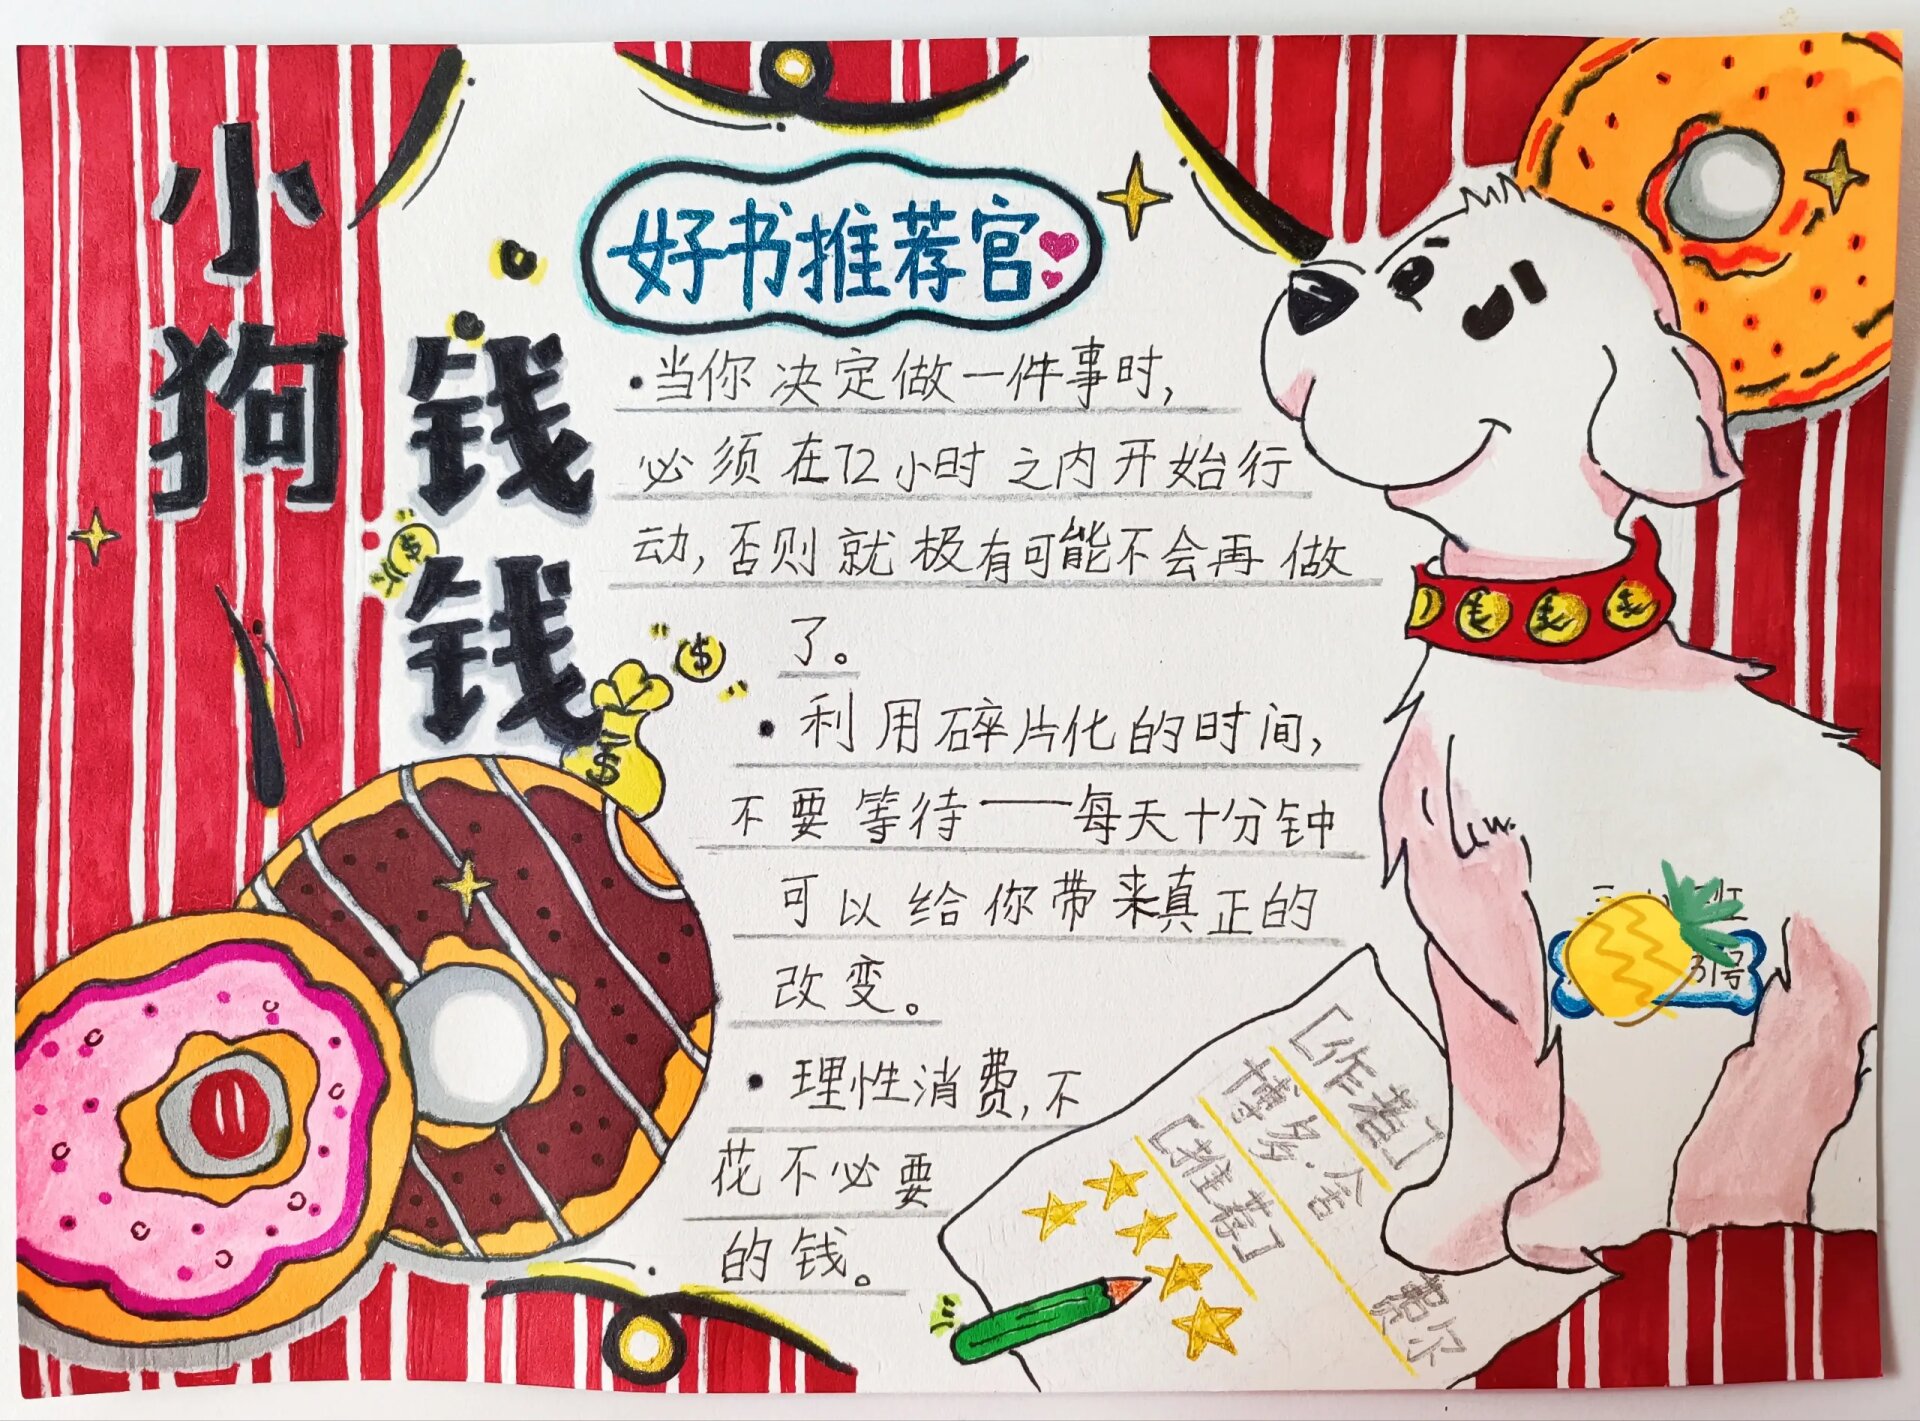 小狗
钱钱
好书推荐官
·当你决定做一件事时,
必须在72小时之内开始行
动,否则就极有可能不会再做
了。
·利用碎片化的时间,
不要等待——每天十分钟
可以给你带来真正的
改变。
·理性消费,不
花不必要
的钱。
[作者]
博多·舍费尔
[推荐]
31号